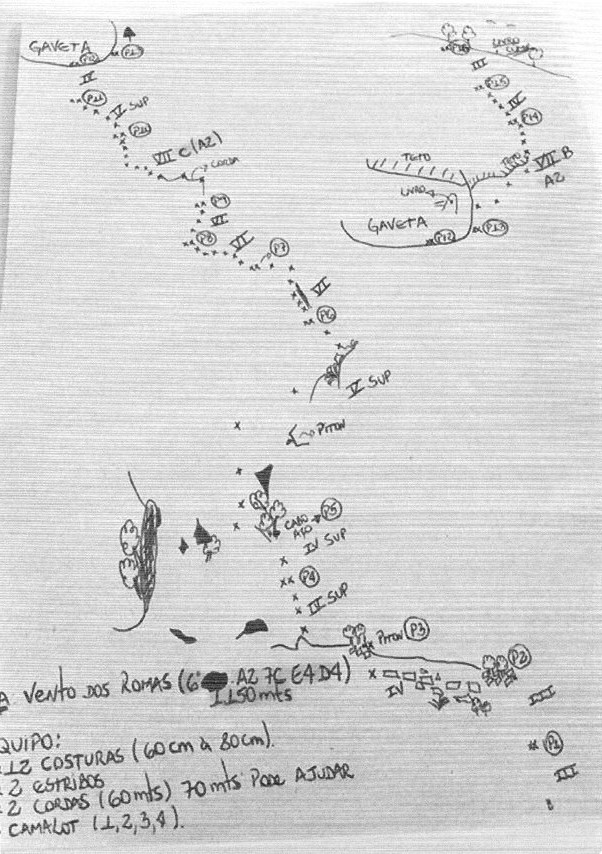 GAVETA
P12
P13
IV
P11
V SUP
P10
VII C (A2)
CORDA
P9
VI
P8
VI
P7
VI
P6
V SUP
PITON
CABO AÇO
P5
IV SUP
P4
IV SUP
PITON P3
P2
IV
III
P1
III
LIVRO
CUME
III
P15
IV
P14
TETO
TETO
VII B
A2
LIVRO
GAVETA
P12
P13
A VENTO DOS ROMAS (6° A2 7C E4 D4)
1150 mts
QUIPO:
12 COSTURAS (60cm à 80cm).
2 ESTRIBOS
2 CORDAS (60mts) 70 mts PODE AJUDAR
CAMALOT (1,2,3,4).